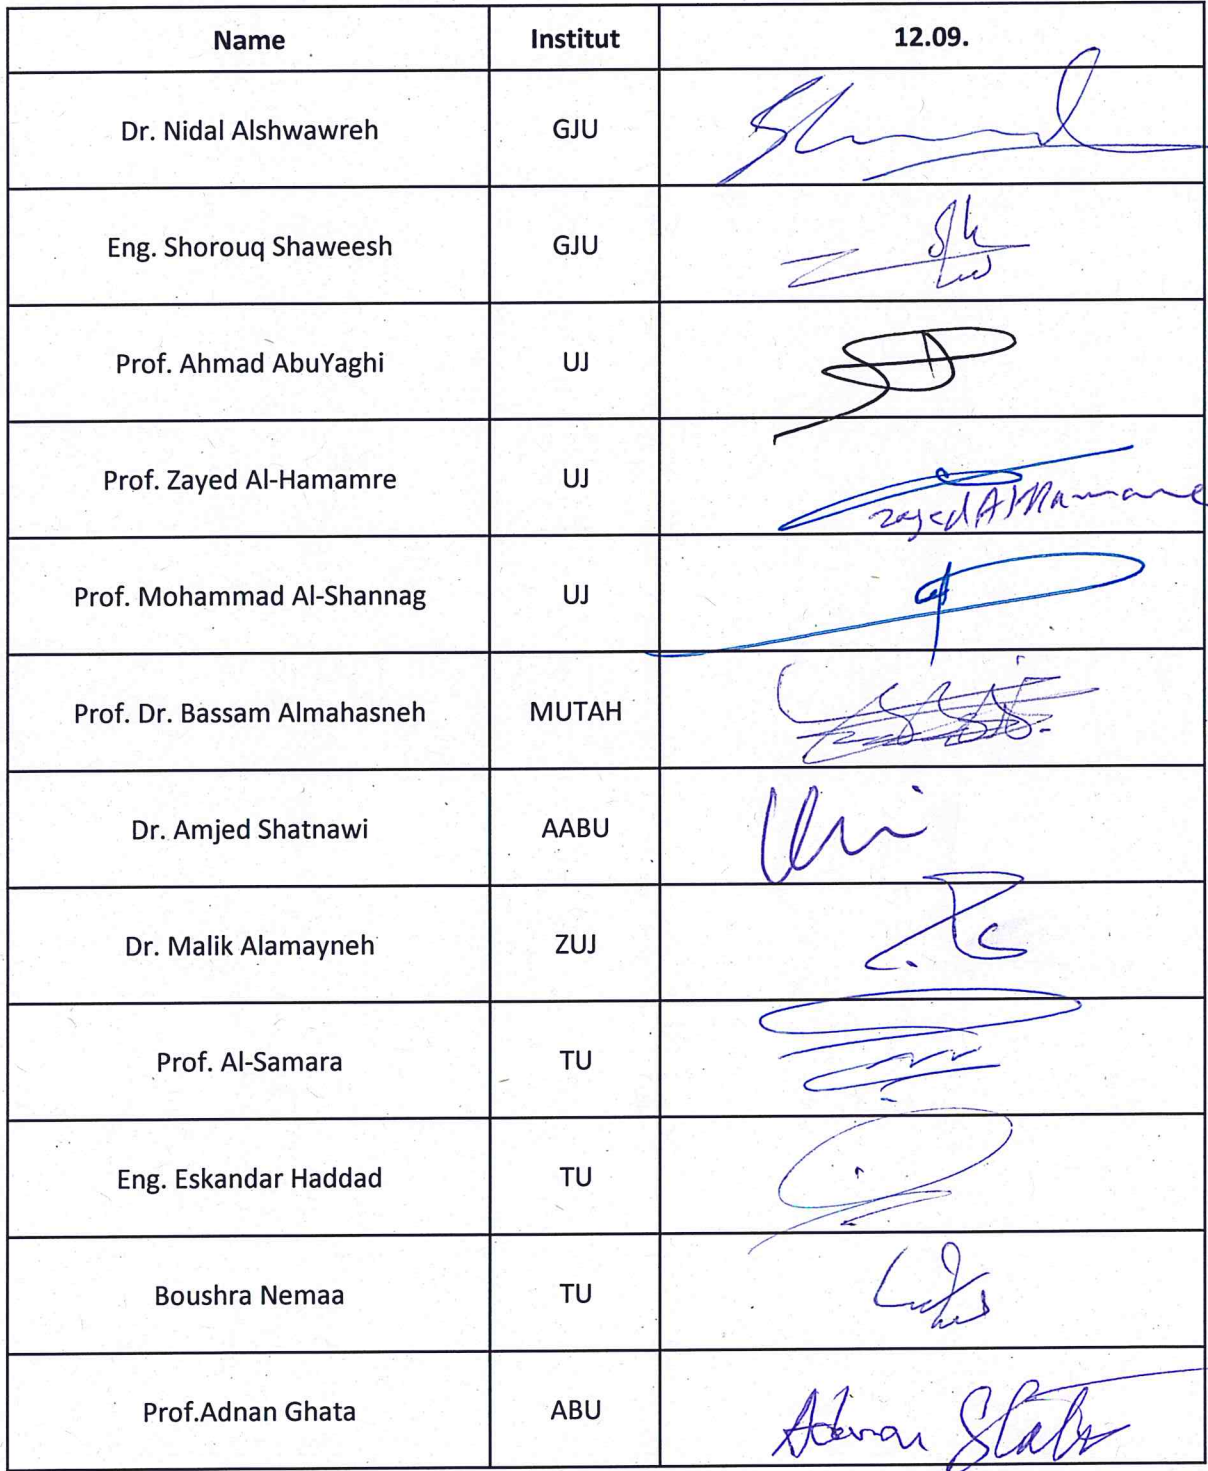 Name Institut 12.09.
Dr. Nidal Alshwawreh GJU
Eng. Shorouq Shaweesh GJU
Prof. Ahmad AbuYaghi UJ
Prof. Zayed Al-Hamamre UJ
Zayed Al Hamamre
Prof. Mohammad Al-Shannag UJ
Prof. Dr. Bassam Almahasneh MUTAH
Dr. Amjed Shatnawi AABU
Dr. Malik Alamayneh ZUJ
Prof. Al-Samara TU
Eng. Eskandar Haddad TU
Boushra Nemaa TU
Prof.Adnan Ghata ABU
Adnan